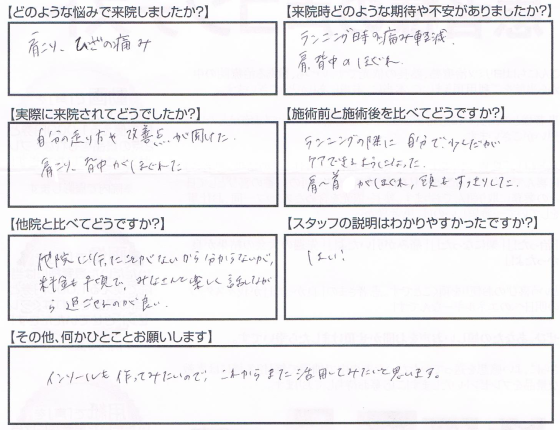 【どのような悩みで来院しましたか?】
肩こり、ひざの痛み
【来院時どのような期待や不安がありましたか?】
ランニング時の痛み軽減。
肩、背中のほぐれ。
【実際に来院されてどうでしたか?】
自分の走り方や改善点が聞けた。
肩こり、背中がほぐれた
【施術前と施術後を比べてどうですか?】
ランニングの際に自分で少しだが
ケアできるようになった。
肩〜首がほぐれ、頭もすっきりした。
【他院と比べてどうですか?】
他院に行ったことがないから分からないが、
料金も手頃で、みなさんで楽しく話しなが
ら過ごせるのが良い。
【スタッフの説明はわかりやすかったですか?】
はい!
【その他、何かひとことお願いします】
インソールも作ってみたいので、これからまた活用してみたいと思います。